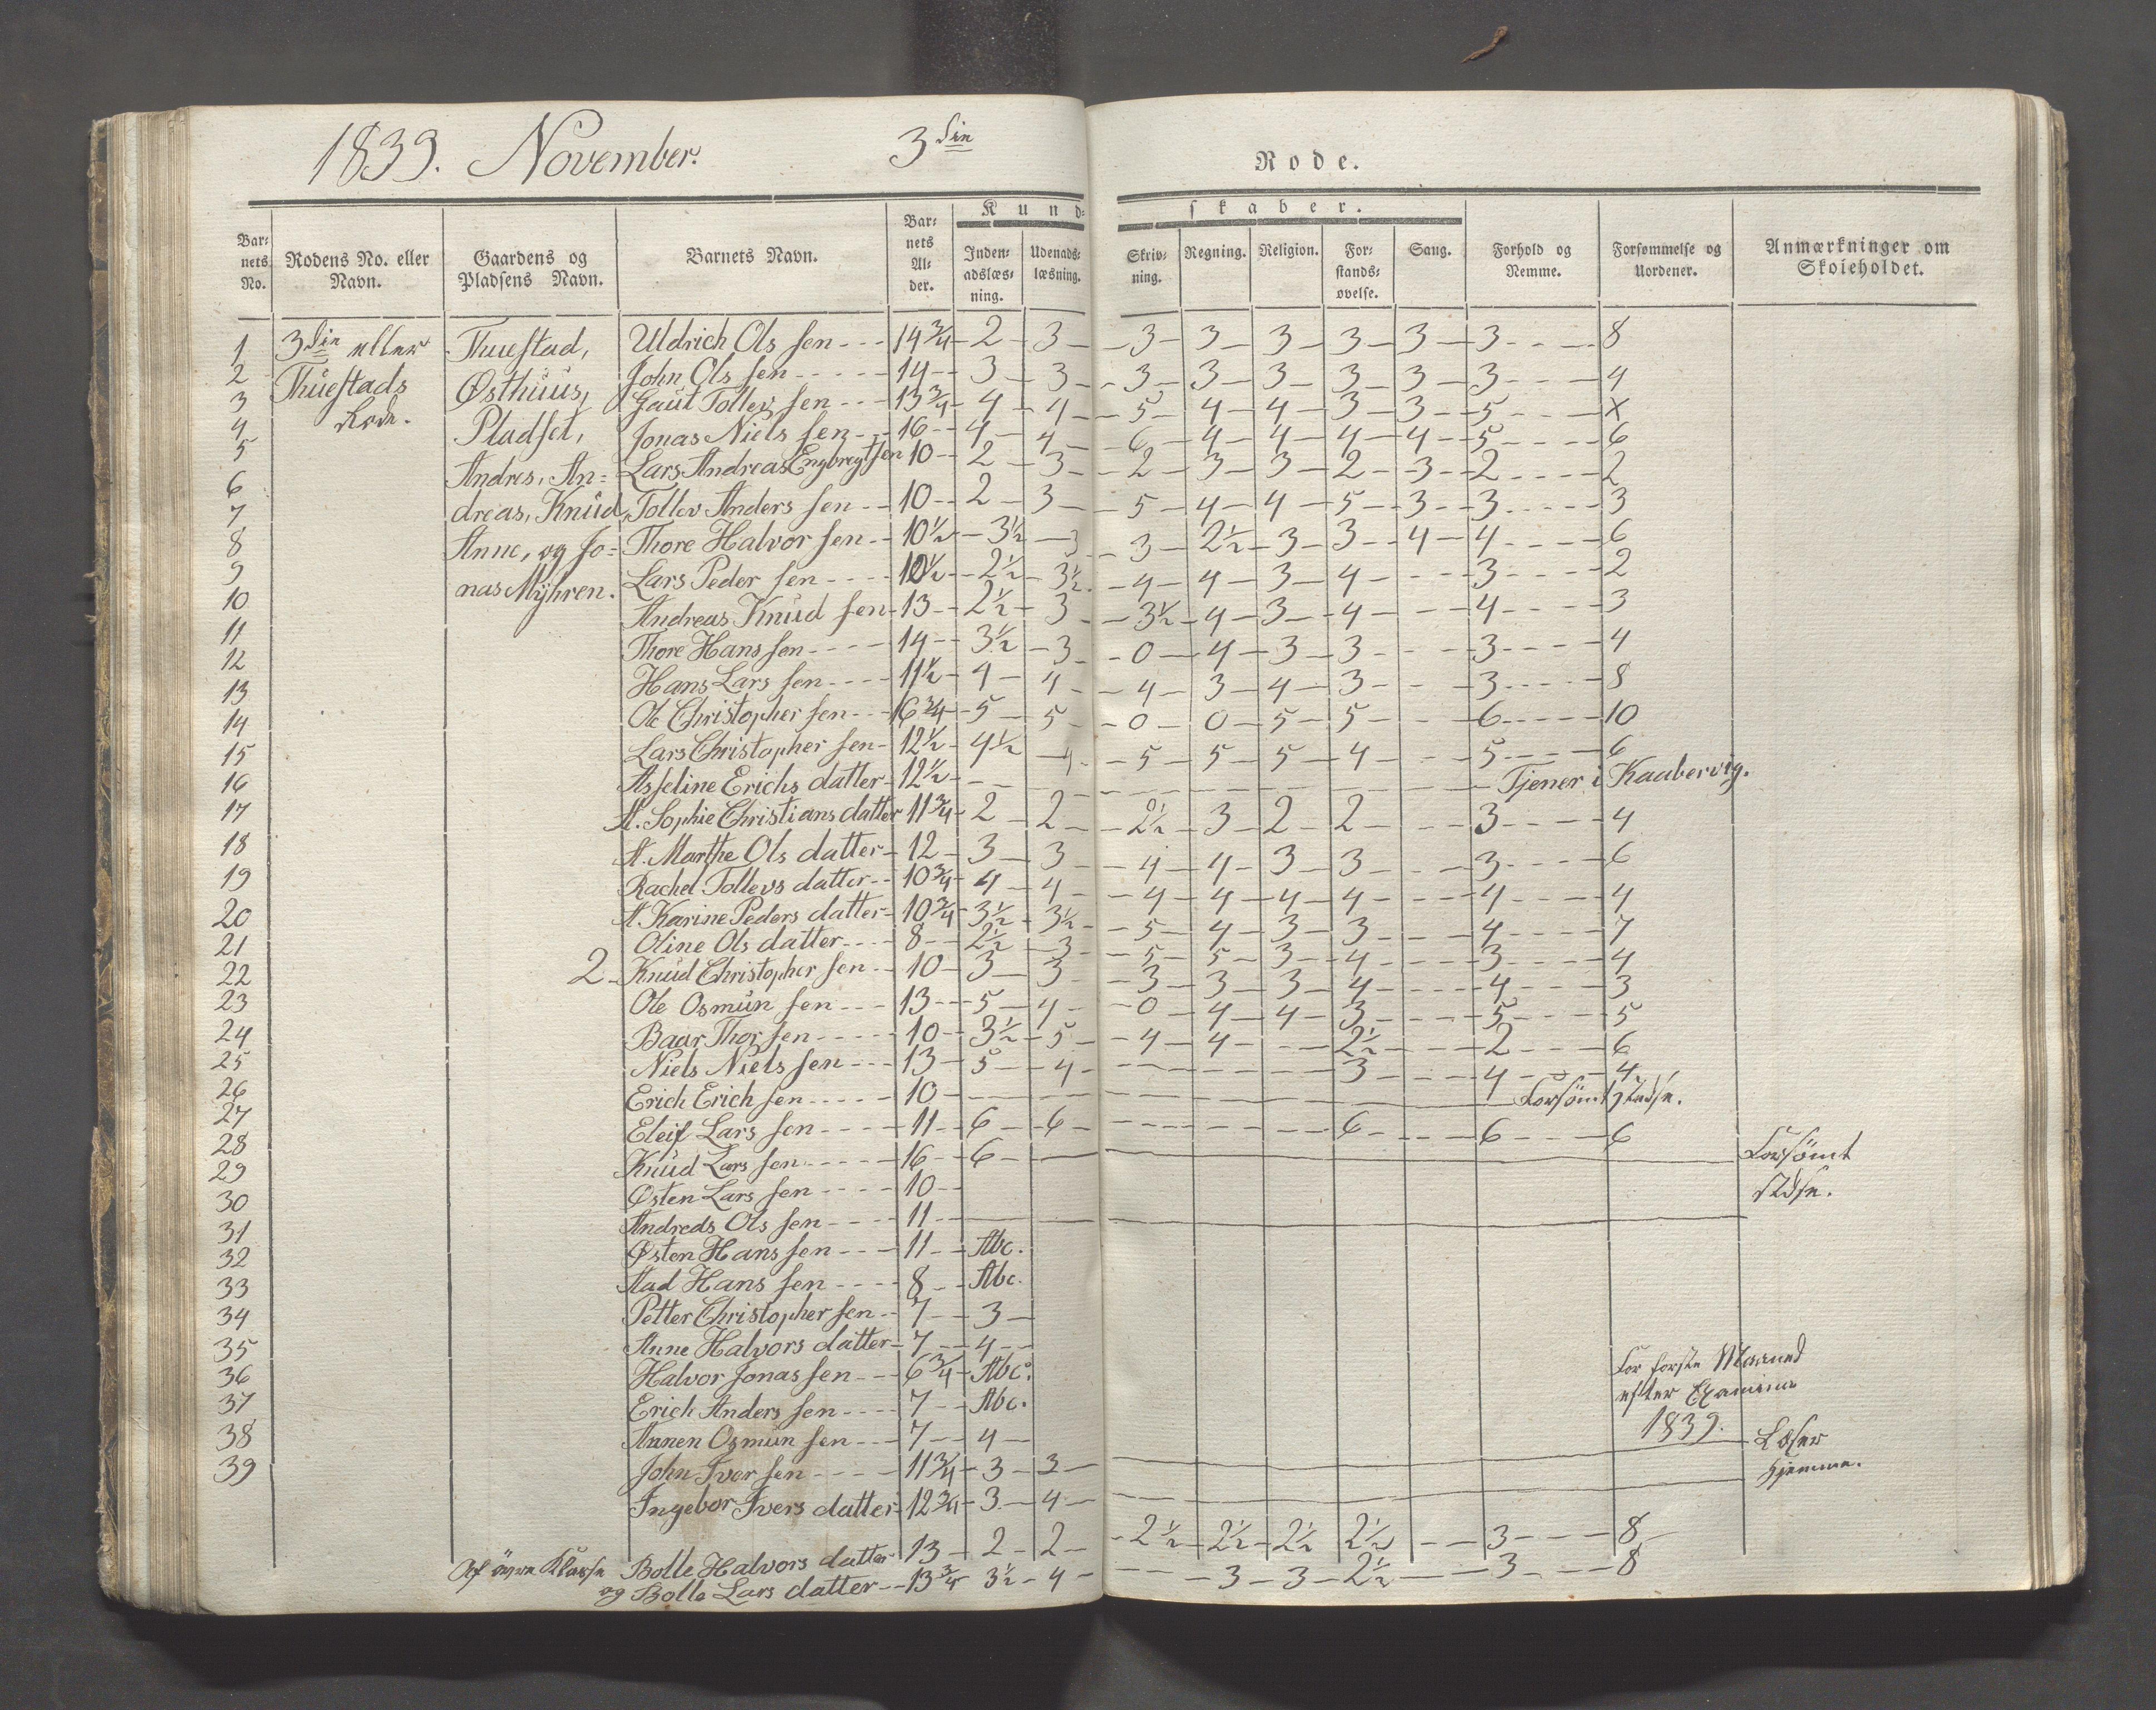 1839. November. 3die Rode.
Kundskaber.
Barnets No. Rodens No. eller Navn. Gaardens og Pladsens Navn. Barnets Navn. Barnets Alder. Indenadslæsning. Udenadslæsning. Skrivning. Regning. Religion. Forstandsøvelse. Sang. Forhold og Nemme. Forsømmelse og Uordener. Anmærkninger om Skoleholdet.
1 3die eller Thuestad, Uldrich Ols sen 14 3/4 2 3 3 3 3 3 3 3 8
2 Thuestads Østhuus, John Ols sen 14 3 3 3 3 3 3 3 3 4
3 Rode. Pladset, Gaut Tollev sen 13 3/4 4 4 5 4 4 3 3 5 X
4 Jonas Niels sen 16 4 4 6 4 4 4 4 5 6
5 Andres, An= Lars Andreas Engbregtsen 10 2 3 2 3 3 2 3 2 2
6 dreas, Knud, Tollev Anders sen 10 2 3 5 4 4 5 3 3 3
7 Anne, og Jo= Thore Halvor sen 10 1/2 3 1/2 3 3 2 1/2 3 3 4 4 6
8 nas Myhren. Lars Peder sen 10 1/2 2 1/2 3 1/2 4 4 3 4 3 2
9 Andreas Knud sen 13 2 1/2 3 3 1/2 4 3 4 4 3
10 Thore Hans sen 14 3 1/2 3 0 4 3 3 3 4
11 Hans Lars sen 11 1/2 4 4 4 3 4 3 3 8
12 Ole Christopher sen 16 3/4 5 5 0 0 5 5 6 10
13 Lars Christopher sen 12 1/2 4 1/2 4 5 5 5 4 5 6
14 Asseline Erichs datter 12 1/2 Tjener i Kaabervig.
15 A. Sophie Christians datter 11 3/4 2 2 2 1/2 3 2 2 3 4
16 A. Marthe Ols datter 12 3 3 4 4 3 3 3 6
17 Rachel Tollevs datter 10 3/4 4 4 4 4 4 4 4 4
18 A. Karine Peders datter 10 3/4 3 1/2 3 1/2 5 4 3 3 4 7
19 Oline Ols datter 8 2 1/2 3 5 5 3 4 3 4
20 2 Knud Christopher sen 10 3 3 3 3 3 4 4 3
21 Ole Osmun sen 13 5 4 0 4 4 3 5 5
22 Baar Thor sen 10 3 1/2 5 4 4 2 1/2 2 6
23 Niels Niels sen 13 5 4 3 4 4
24 Erich Erich sen 10 Forsömt stedse.
25 Eleif Lars sen 11 6 6 6 6 6
26 Knud Lars sen 16 6 Forsömt
27 Østen Lars sen 10 stedse.
28 Andreas Ols sen 11
29 Østen Hans sen 11 Abc.
30 Aad Hans sen 8 Abc.
31 Petter Christopher sen 7 3
32 Anne Halvors datter 7 4
33 Halvor Jonas sen 6 3/4 Abc.
34 Erich Anders sen 7 Abc.
35 Aanen Osmun sen 7 4
36 John Iver sen 11 3/4 3 3
37 Ingebor Ivers datter 12 3/4 3 4
38
39
For förste Maaned
efter Examine
1839.
Læser
hjemme.
Af övre Klasse Bolle Halvors datter 13 2 2 2 1/2 2 1/2 2 1/2 2 1/2 3 8
og Bolle Lars datter 13 3/4 3 1/2 4 3 3 2 1/2 3 8